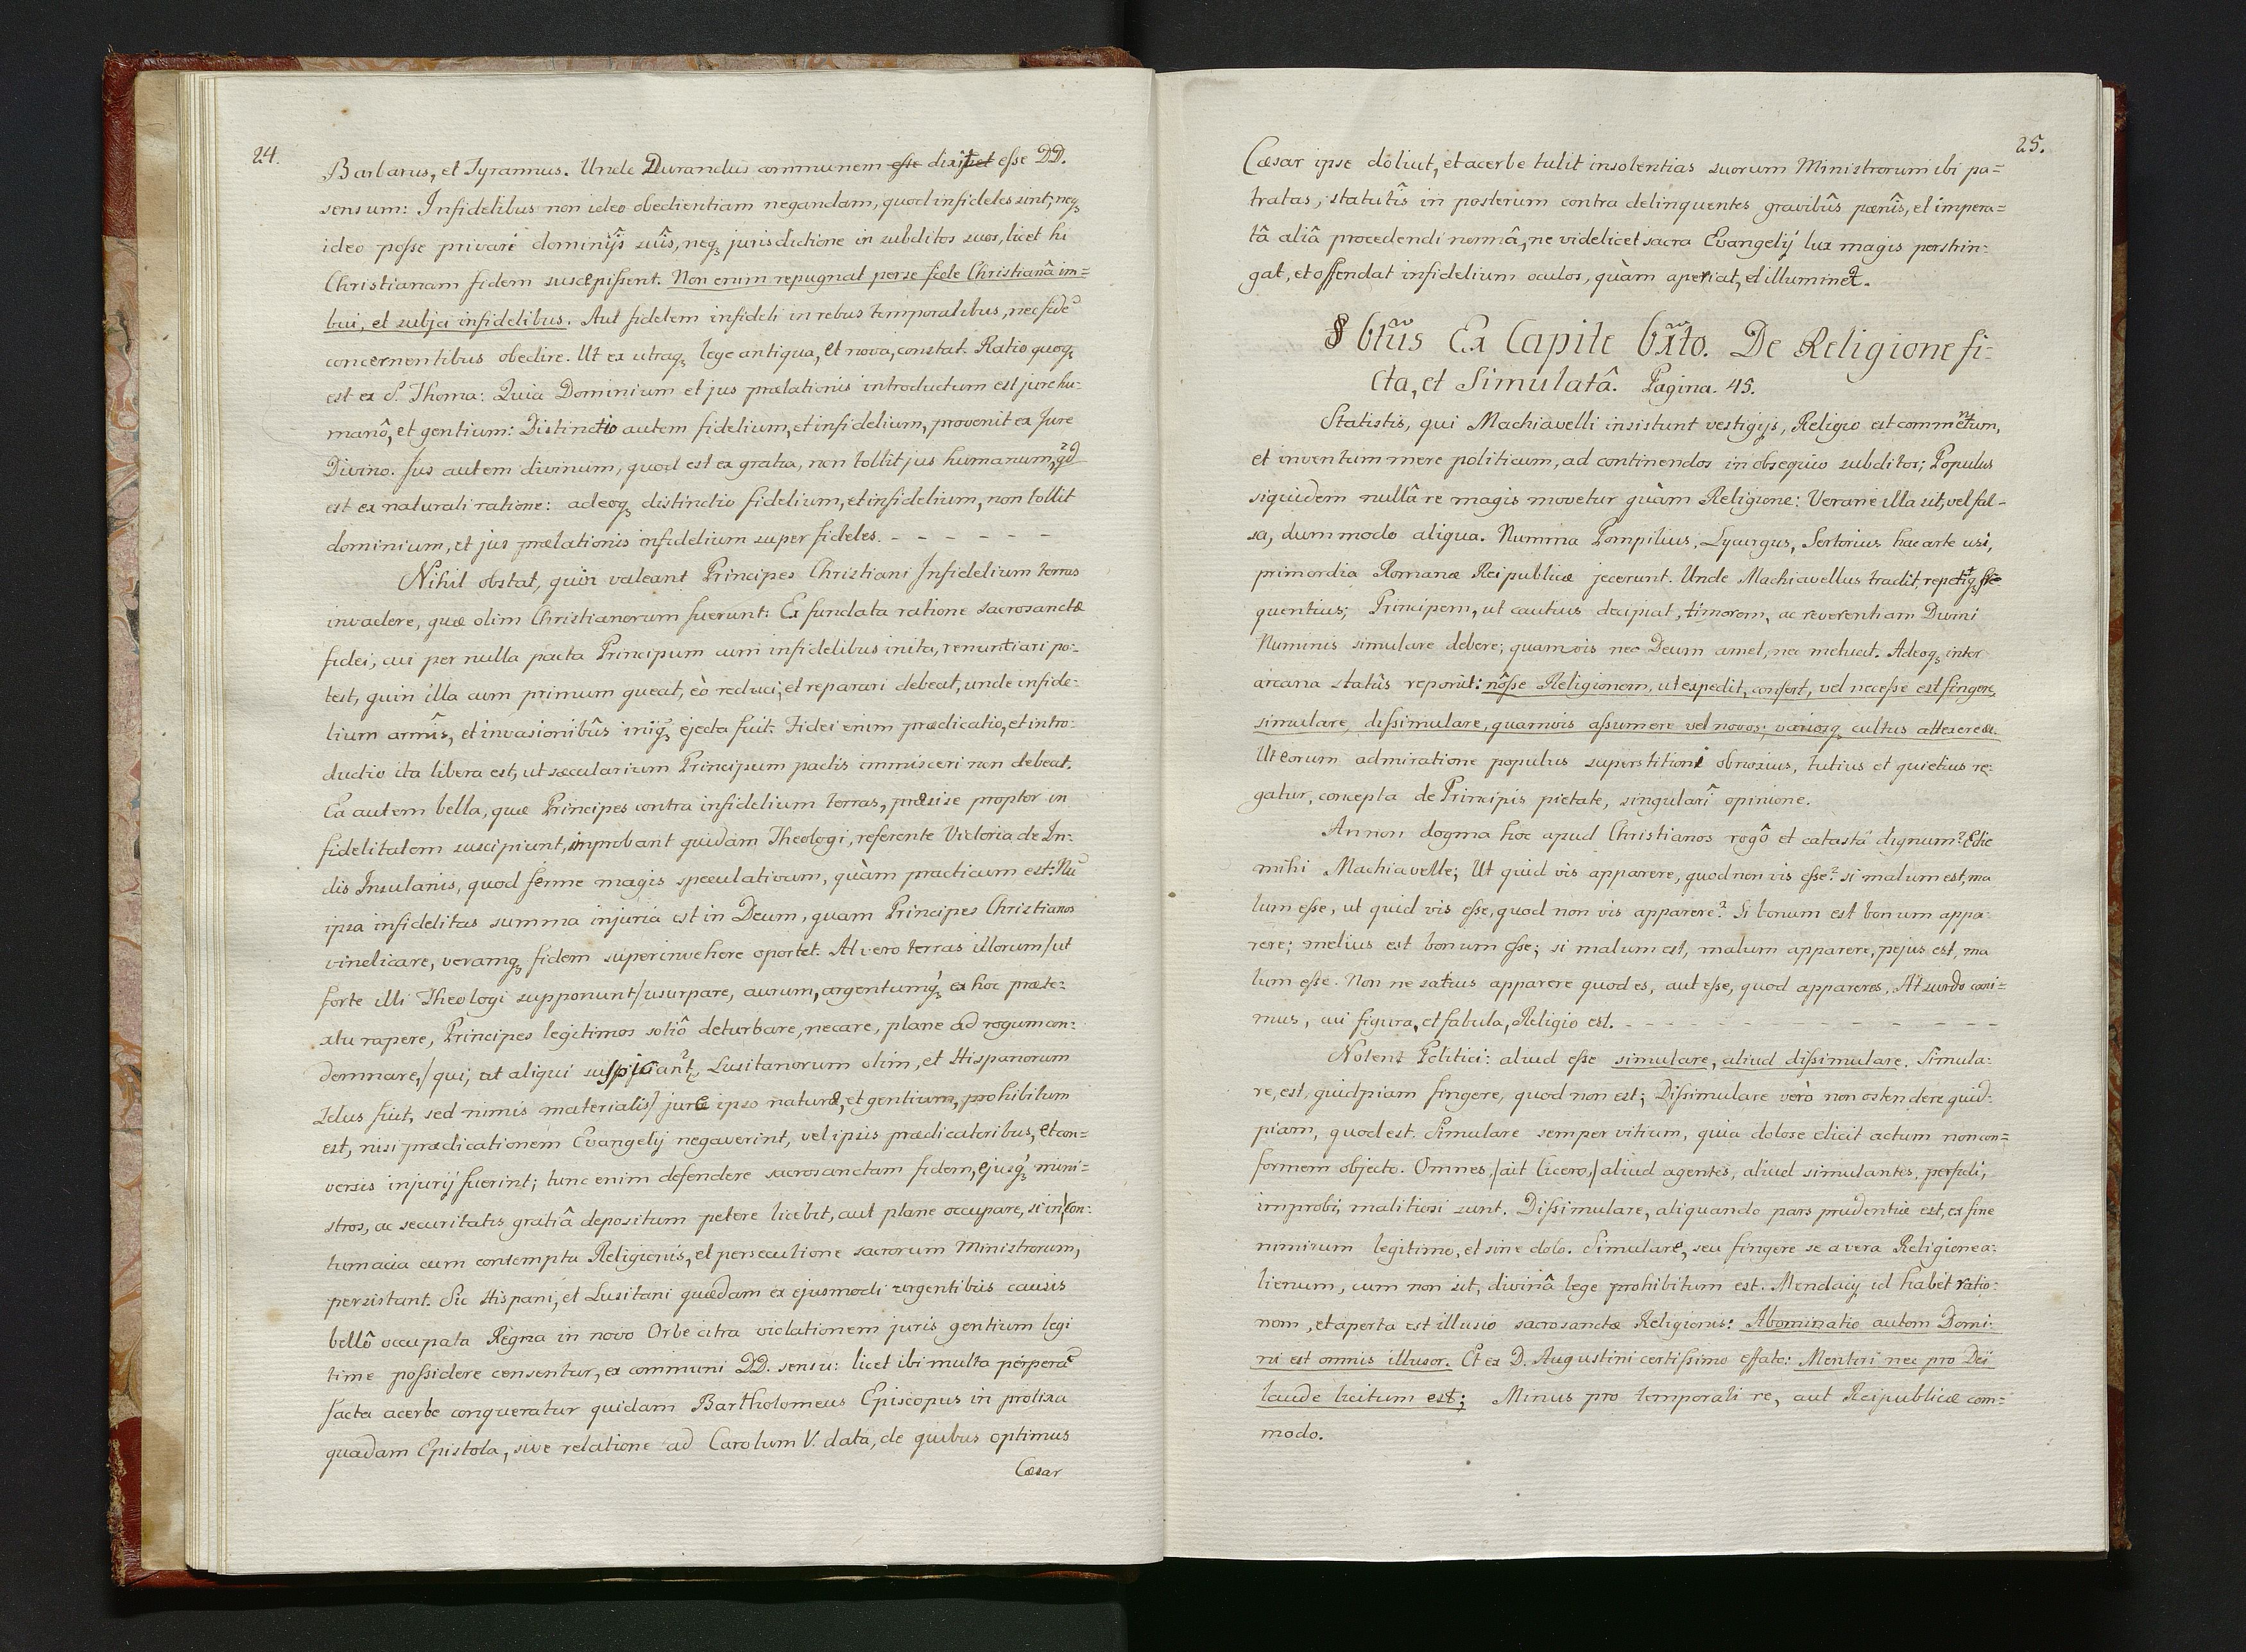 24.
Barbarus, et Tyrannus. Unde Durandus communem esse dixit esse DD.
sensum: Infidelibus non ideo obedientiam negandam, quod infideles sint; neqȝ
ideo posse privari dominijs suîs, neqȝ jurisdictione in subditos suos, licet hi
Christianam fidem suscepissent. Non enim repugnat perse fide Christianâ im=
bui, et subjci infidelibus. Aut fidelem infideli in rebus temporalibus, nec fidē
concernentibus obedire. Ut ex utraqȝ lege antiqua, et nova, constat. Ratio quoqȝ
est ex S. Thoma: Quia Dominium et jus prælationis introductum est jure hu-
manô, et gentium: Distinctio autem fidelium, et infidelium, provenit ex Jure
Divino. Jus autem divinum, quod est ex gratia, non tollit jus humanum, qd
est ex naturali ratione: adeoqȝ distinctio fidelium, et infidelium, non tollit
dominium, et jus prælationis infidelium super fideles. - - - - - -
Nihil obstat, quin valeant Principes Christiani Infidelium terras
invadere, quæ olim Christianorum fuerunt: Ex fundata ratione sacrosanctæ
fidei, cui per nulla pacta Principum cum infidelibus inita, renuntiari po-
test, quin illa cum primum queat, eò reduci, et reparari debeat, unde infide-
lium armîs, et invasionibûs iniqȝ ejecta fuit. Fidei enim prædicatio, et intro-
ductio ita libera est, ut sæcularium Principum pactis immisceri non debeat.
Ea autem bella, quæ Principes contra infidelium terras, præcise propter in
fidelitatem suscipiunt, improbant quidam Theologi, referente Victoria de In-
dis Insulanis, quod ferme magis speculativum, quàm practicum est: Nā
ipsa infidelitas summa injuria est in Deum, quam Principes Christianos
vindicare, veramqȝ fidem superinvehere oportet. At vero terras illorum /ut
forte illi Theologi supponunt/ usurpare, aurum, argentumqȝ ex hoc præte-
xtu rapere, Principes legitimos soliô deturbare, necare, plane ad rogum con-
demnare, /qui, ut aliqui suspicant, Lusitanorum olim, et Hispanorum
zelus fuit, sed nimis materialis/ jure ipso naturæ, et gentium, prohibitum
est, nisi prædicationem Evangelij negaverint, vel ipsis prædicatoribus, et con=
versis injurij fuerint; tunc enim defendere sacrosanctam fidem, ejusqȝ mini=
stros, ac securitatis gratiâ depositum petere licebit, aut plane occupare, si in con-
tumacia cum contemptu Religionis, et persecutione sacrorum Ministrorum,
persistant. Sic Hispani, et Lusitani quædam ex ejusmodi urgentibus causis
bellô occupata Regna in novo Orbe citra violationem juris gentium legi
time possidere censentur, ex communi DD. sensu: licet ibi multa perperā
facta acerbe conqueratur quidam Bartholomeus Episcopus in prolixa
quadam Epistola, sive relatione ad Carolum V. data, de quibus optimus
Cæsar
25.
Cæsar ipse doliut, et acerbe tulit insolentias suorum Ministrorum ibi pa=
tratas, statutîs in posterum contra delinquentes gravibûs pœnîs, et impera=
tâ aliâ procedendi normâ, ne videlicet sacra Evangelij lux magis perstrin-
gat, et offendat infidelium oculos, quàm aperiat, et illuminet.
§ 6tus Ex Capite 6xto. De Religione fi-
cta, et Simulatâ. Pagina. 45.
Statistis, qui Machiavelli insistunt vestigijs, Religio est commentum,
et inventum mere politicum, ad continendos in obsequio subditos; Populus
siquidem nullâ re magis movetur quàm Religione: Verane illa sit, vel fal-
sa, dummodo aliqua. Numma Pompilius, Lycurgus, Sertorius hac arte usi,
primordia Romanæ Reipublicæ jecerunt. Unde Machiavellus tradit, repetitqȝ fre
quentius; Principem, ut cautius decipiat, timorem, ac reverentiam Divini
Numinis simulare debere; quamvis nec Deum amet, nec metuat. Adeoqȝ inter
arcana statûs reponit: nôsse Religionem, ut expedit, confert, vel necesse est fingere,
simulare, dissimulare, quamvis assumere vel novos, variosqȝ cultus
Ut eorum admiratione populus superstitioni obnoxius, tutius et quietius re-
gatur, concepta de Principis pietate, singularî opinione.
Annon dogma hoc apud Christianos rogô et catastâ dignum? Edic
mihi Machiavelle; Ut quid vis apparere, quod non vis esse? si malum est, ma
lum esse, ut quid vis esse, quod non vis apparere? Si bonum est bonum appa-
rere; melius est bonum esse; si malum est, malum apparere, pejus est, ma
lum esse. Non ne satius apparere quod es, aut esse, quod appareres. At surdo cani=
mus, cui figura, et fabula, Religio est. - - - - - - - - - - -
Notent Politici: aliud esse simulare, aliud dissimulare. Simula-
re, est, quidpiam fingere, quod non est; Dissimulare verò non ostendere quid-
piam, quod est. Simulare semper vitium, quia dolose elicit actum noncon=
formem objecto. Omnes, /ait Cicero,/ aliud agentes, aliud simulantes, perfidi,
improbi, malitiosi sunt. Dissimulare, aliquando pars prudentiæ est, ex fine
nimirum legitimo, et sine dolo. Simulare, seu fingere se a vera Religione a-
lienum, cum non sit, divinâ lege prohibitum est. Mendacij id habet ratio-
nem, et aperta est illusio sacrosanctæ Religionis: Abominatio autem Domi-
ni est omnis illusor. Et ex D. Augustini certissimo effato: Mentiri nec pro Dei
laude licitum est; Minus pro temporali re, aut Reipublicæ com=
modo.